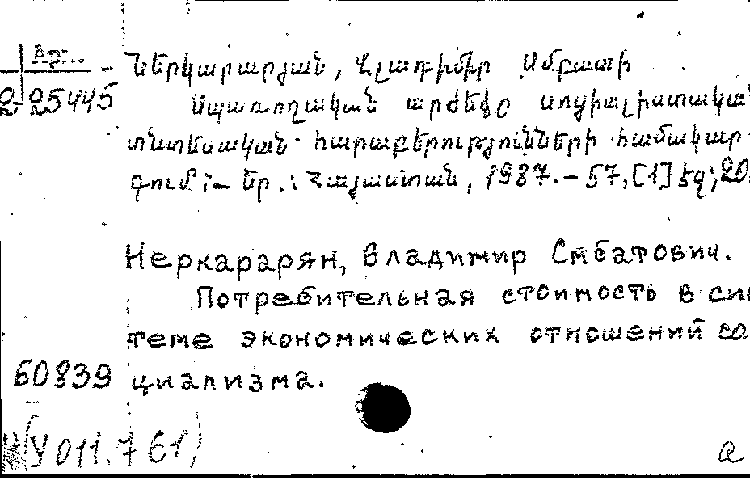 Ներկարարյան, Վլադիմիր Սմբատի
2 25445 Սպառողական արժեքը սոցիալիստական
տնտեսական հարաբերությունների համակար-
գում :- Եր. : Հայաստան, 1987. – 57, [1] էջ; 20.
Неркарарян, Владимир Смбатович.
Потребительная стоимость в сис
теме экономических отношений со
60839 циализма.
У011.761)
а